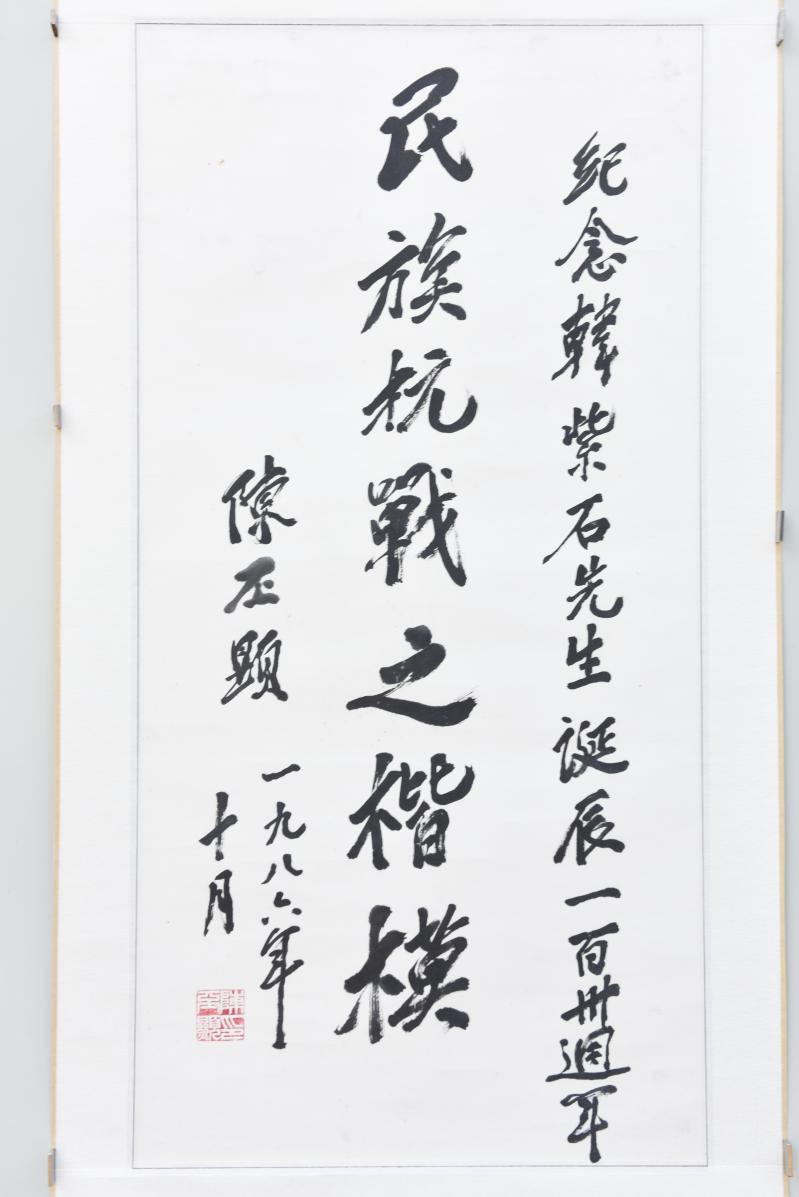 纪念韩紫石先生诞辰一百卅週年
民族抗戰之楷模
陳丕顕
一九八六年
十月